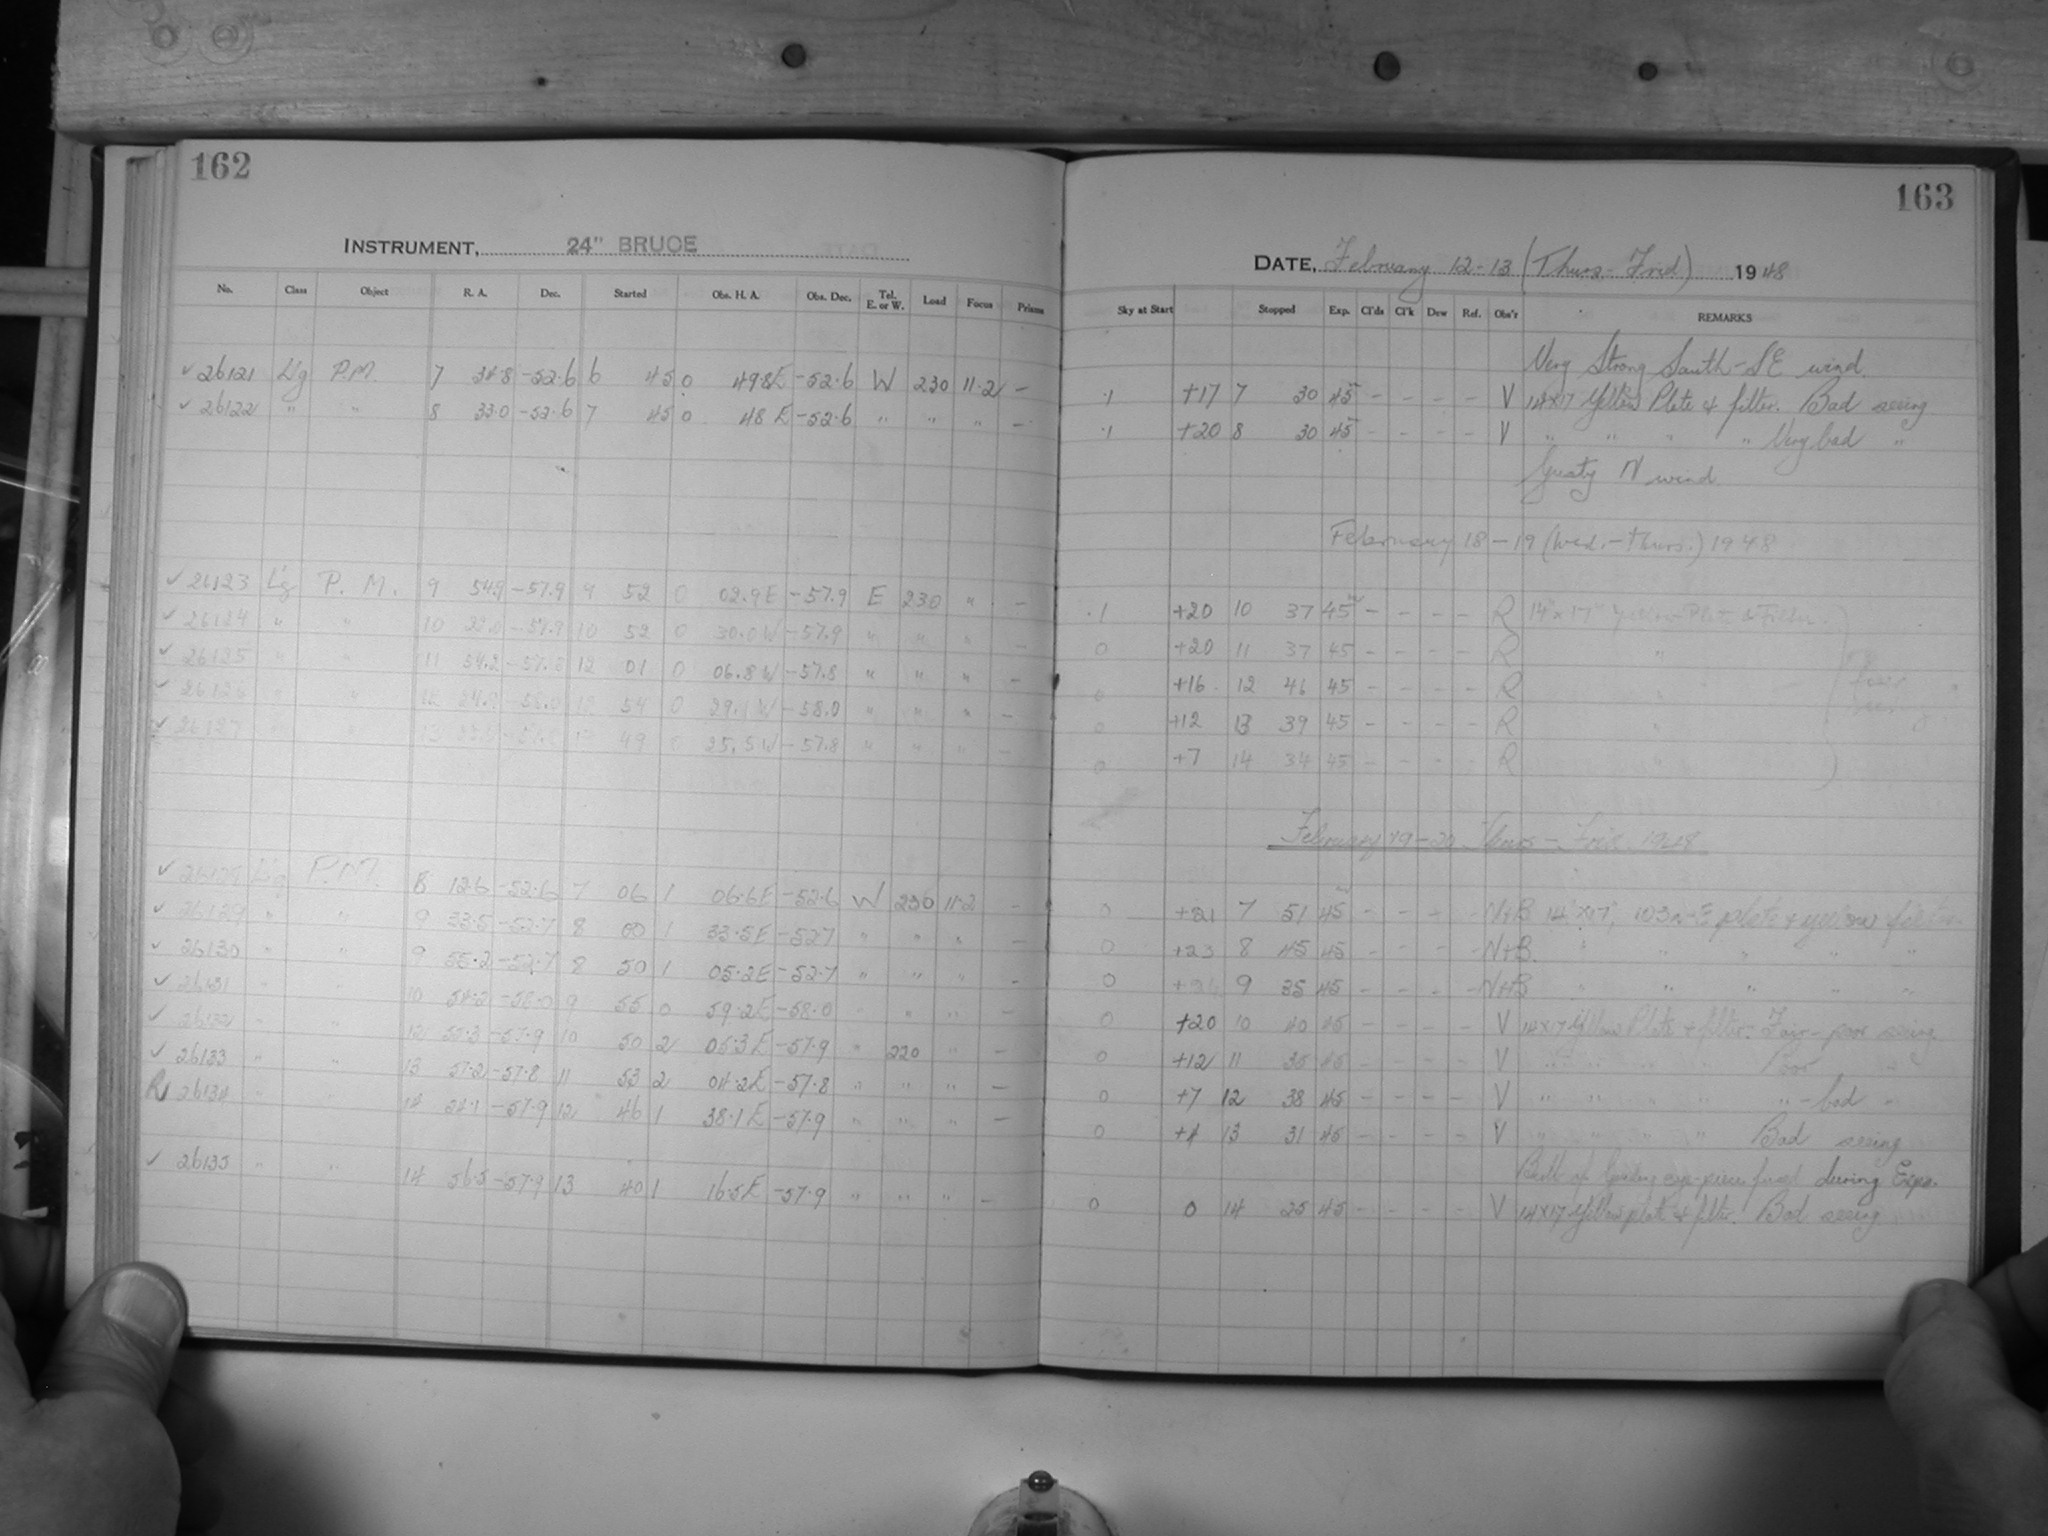 162
INSTRUMENT, 24" BRUCE
No. Class Object R. A. Dec. Started Obs. H. A. Obs. Dec. Tel. E. or W. Load Focus Prisms
✓ 26121 L'g P.M. 7 34.8 -52.6 6 45 0 49.8E -52.6 W 230 11.2 -
✓ 26122 " " 8 33.0 -52.6 7 45 0 48 E -52.6 " " " -
✓ 26123 L'g P. M. 9 54.9 -57.9 9 52 0 02.9E -57.9 E 230 " -
✓ 26124 " " 10 52 0 30.0W -57.9 " " " -
✓ 26125 " " 11 54.2 -57.8 12 01 0 06.8W -57.8 " " " -
✓ 26126 " " 54 0 29.1W -58.0 " " " -
✓ 26127 " 49 0 25.5W -57.8 " " " -
✓ L'g P.M. 8 12.6 -52.6 7 06 1 06.6E -52.6 W 230 11.2 -
✓ 26129 " " 9 33.5 -52.7 8 00 1 33.5E -52.7 " " " -
✓ 26130 " " 9 55.2 -52.7 8 50 1 05.2E -52.7 " " " -
✓ 26131 " " 10 54.2 -58.0 9 55 0 59.2E -58.0 " " " -
✓ 26132 " " 12 55.3 -57.9 10 50 2 05.3E -57.9 " 220 " -
✓ 26133 " " 13 57.2 -57.8 11 53 2 04.2E -57.8 " " " -
R 26134 " " 14 24.1 -57.9 12 46 1 38.1E -57.9 " " " -
✓ 26135 " " 14 56.5 -57.9 13 40 1 16.5E -57.9 " " " -
163
DATE, February 12-13 (Thurs-Frid) 1948
Sky at Start Stopped Exp. Cl'ds Cl'k Dew Ref. Obs'r REMARKS
Very Strong South-SE wind.
.1 +17 7 30 45 - - - - V 14x17 Yellow Plate & filter. Bad seeing
.1 +20 8 30 45 - - - - V " " " " Very bad "
Gusty N wind
February 18-19 (Wed.-Thurs.) 1948
.1 +20 10 37 45 - - - - R 14"x17" Yellow Plate & Filter.
0 +20 11 37 45 - - - - R "
0 +16 12 46 45 - - - - R
0 +12 13 39 45 - - - - R "
0 +7 14 34 45 - - - - R "
February 19-20 Thurs-Frid. 1948
0 +21 7 51 45 - - - - N+B 14"x17", 103a-E plate & yellow filter
0 +23 8 45 45 - - - - N+B " " " " "
0 9 35 45 - - - - N+B " " " " "
0 +20 10 40 45 - - - - V 14x17 Yellow Plate & filter. Fair-poor seeing
0 +12 11 35 45 - - - - V " " " " Poor "
0 +7 12 38 45 - - - - V " " " " " -bad "
0 +4 13 31 45 - - - - V " " " " Bad seeing
Bulb of Guiding eye-piece fused during Expo.
0 0 14 25 45 - - - - V 14x17 Yellow plate & filter. Bad seeing